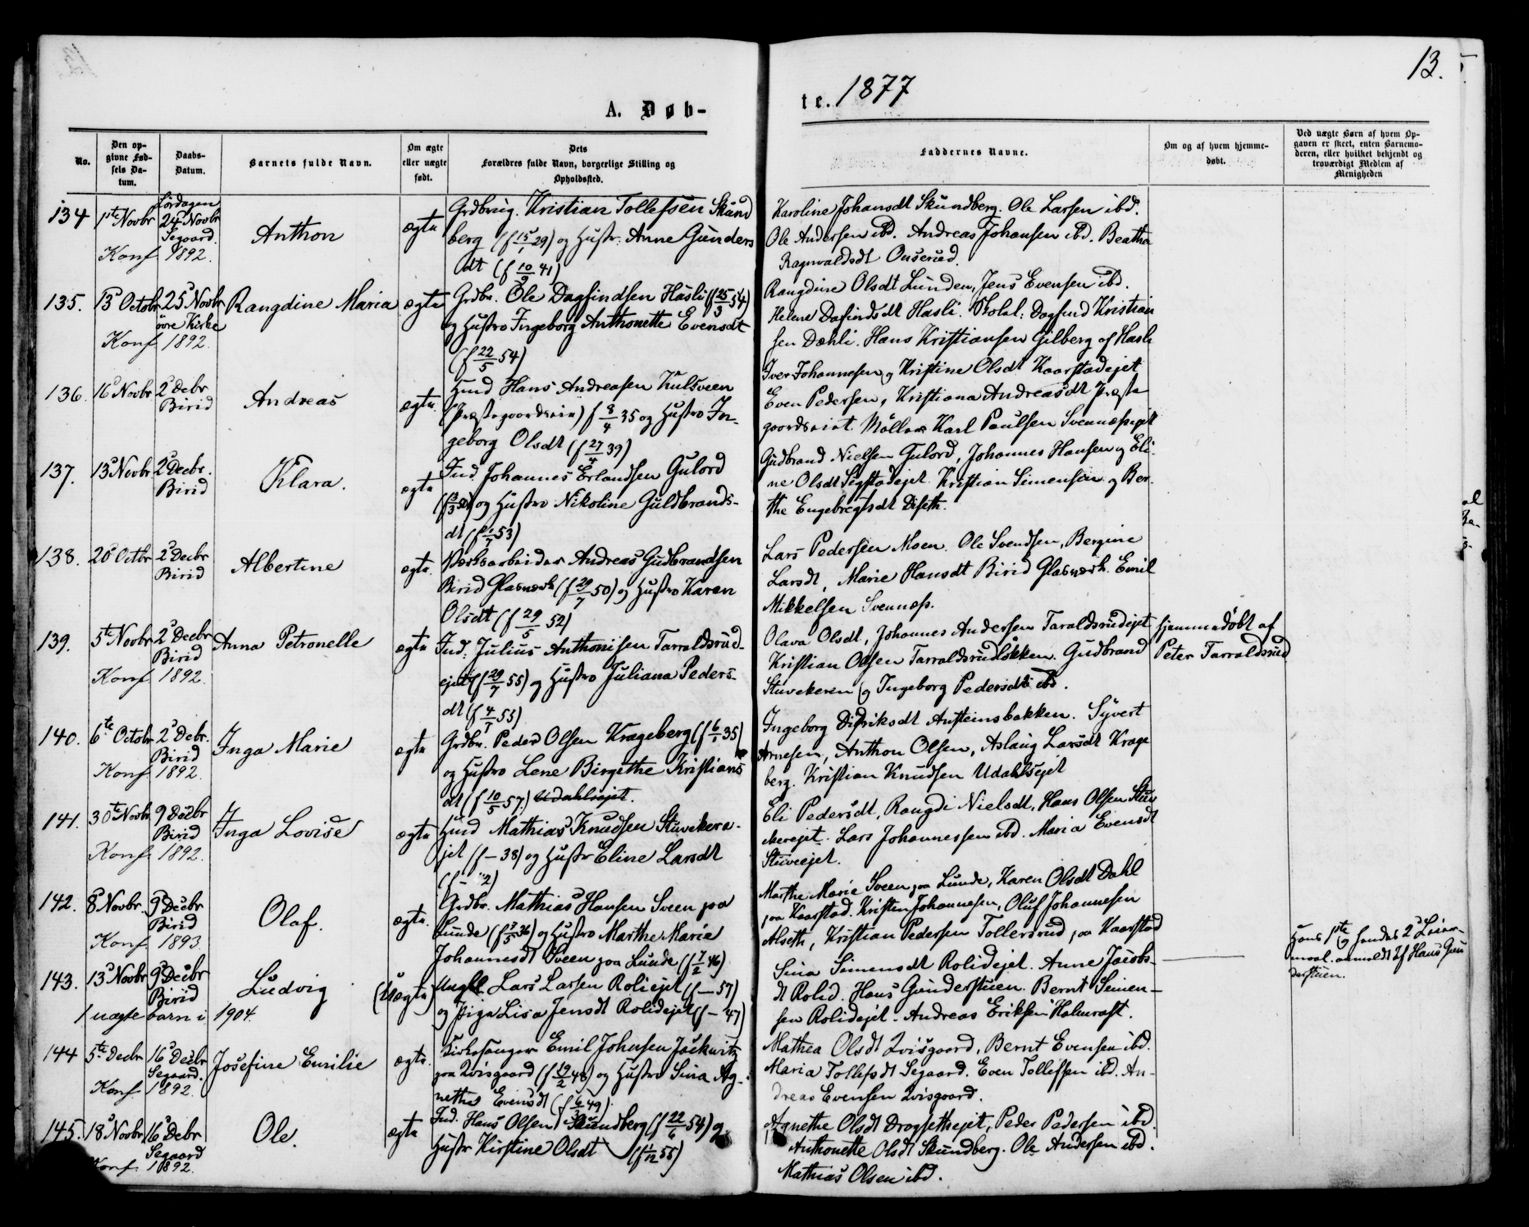 13.
A. Døb-
te. 1877
No.
Den op-
givne Fød-
sels Da-
tum.
Daabs-
Datum.
Barnets fulde Navn.
Om ægte
eller uægte
født.
Dets
Forældres fulde Navn, borgerlige Stilling og
Opholdssted.
Faddernes Navne.
Om og af hvem hjemme-
døbt.
Ved uægte Børn af hvem Op-
gaven er skeet, enten Barnemo-
deren, eller hvilket bekjendt og
troværdigt Medlem af
Menigheden
134 1ste Novbr Lørdagen
24 Novbr
Segaard
Konf 1892.
Anthon
ægte
Grdbrug. Kristian Tollefsen Skund
berg (f 15/1 29) og Hustr. Anne Gunders
dt (f 10/9 41)
Karoline Johansdt Skundberg. Ole Larsen ibd.
Ole Andersen ibd. Andreas Johansen ibd. Beathe
Ragnvaldsdt Onserud.
135. 13 Octobr 25 Novbr
øvre Kirke
Konf 1892.
Rangdine Maria
ægte
Grdbr. Ole Dagfindsen Hasli (f 25/3 54)
og Hustro Ingeborg Anthonette Evensdt
(f 22/5 54)
Rangdine Olsdt Lunden, Jens Evensen ibd.
Helene Dafindsdt Hasli. Skolel: Dagfind Kristian
sen Dæhli. Hans Kristiansen Gilberg af Hasli
136. 16 Novbr 2 Decbr
Birid
Andreas
ægte
Husmd Hans Andreasen Kulsveen
(Præstegaardseie) f 8/4 35 og Hustro In-
geborg Olsdt (f 27/4 39)
Iver Johannesen og Kristine Olsdt Kaarstadejet
Even Pedersen, Kristiana Andreasdt Præste
gaardseiet Møller Karl Paulsen Svennæsejet
137. 13 Novbr 2 Decbr.
Birid
Klara.
ægte
Ind. Johannes Erlandsen Gulord
og Hustro Nikoline Guldbrands-
dt (f 53)
Gudbrand Nielsen Gulord, Johannes Hansen og Eli-
ne Olsdt Sigstadejet. Kristian Simensen og Ber-
the Engebregtsdt Diseth.
138. 26 Octbr 2 Decbr
Birid
Albertine
ægte.
Verksarbeider Andreas Gudbrandsen
Birid Glasværk (f 29/7 50) og Hustro Karen
Olsdt (f 29/5 52)
Lars Pedersen Moen. Ole Svendsen, Bergine
Larsdt, Marie Hansdt Birid Glasværk. Emil
Mikkelsen Svennæs.
139. 5te Novbr 2 Decbr
Birid
Konf 1892.
Anna Petronelle
ægte
Ind. Julius Anthonisen Tarraldsrud-
ejet (f 29/7 55) og Hustro Juliana Peders-
dt (f 4/7 55)
Olava Olsdt, Johannes Andersen Taraldsrudejet
Kristian Olsen Tarraldsrudløkken. Gudbrand
Stuvekeren og Ingeborg Pedersdt ibd.
hjemmedøbt af
Peter Tarraldsrud
140. 6te Octobr 2 Debr.
Birid
Konf 1892.
Inga Marie
ægte
Grdbr. Peder Olsen Krageberg (f 6/1 35)
og Hustro Lene Birgithe Kristians
dt (f 10/5 57) Udahlsejet.
Ingeborg Didriksdt Ansteinsbakken. Syvert
Arnesen, Anthon Olsen, Aslaug Larsdt Krage
berg. Kristian Knudsen Udahlsejet
141. 30te Novbr 9 Decbr
Birid
Konf 1892.
Inga Lovise
ægte
Husmd Mathias Knudsen Stuvekere-
jet (f – 38) og Hustr Eline Larsdt
Eli Pedersdt, Rangdi Nielsdt, Hans Olsen Stuv
ekerejet. Lars Johannessen ibd. Maria Evensdt
Stuveejet.
142. 8 Novbr. 9 Decbr
Birid
Konf 1893.
Olaf.
ægte.
Grdbr. Mathias Hansen Sveen paa
Lunde (f 7/5 36) og Hustro Marthe Marie
Johannesdt Sveen paa Lunde (f 7/2 46)
Marthe Marie Sveen paa Lunde, Karen Olsdt Dahl
paa Kaarstad. Kristen Johannesen, Oluf Johannesen
Alseth, Kristian Pedersen Tollersrud paa Kaarstad
143. 13 Novbr 9 Decbr
Birid
1 uægte barn i 1904.
Ludvig
(Uægte)
Ungk. Lars Larsen Roliejet (f – 57)
og Pige Lisa Jensdt Rolidejet (f – 47)
Sina Simensdt Rolidejet. Anne Jacobs-
dt Rolid. Hans Gunderstuen. Bernt Simen-
sen Rolidejet. Andreas Eriksen Holmraft.
Hans 1ste og hendes 2 Leier-
maal. anmeldt af Hans Gun
derstuen.
144 5te Decbr 16 Decbr
Segaard.
Konf 1892.
Josefine Emilie
ægte.
Kirkesanger Emil Johnsen Jackwitz
paa Kvisgaard (f 19/2 48) og Hustro Sina Ag-
nethe Evensdt (f 6/3 49)
Mathea Olsdt Kvisgaard, Bernt Evensen ibd.
Maria Tollefsdt Segaard. Even Tollefsen ibd. An-
dreas Evensen Kvisgaard.
145. 18 Novbr 16 Debr
Segaard
Konf 1892.
Ole.
ægte
Ind. Hans Olsen Skundberg (f 22/6 54) og
Hustr Kirstine Olsdt (f 1/12 55)
Agnethe Olsdt Drogsethejet, Peder Pedersen ibd.
Anthonette Olsdt Skundberg. Ole Andersen ibd.
Mathias Olsen ibd.